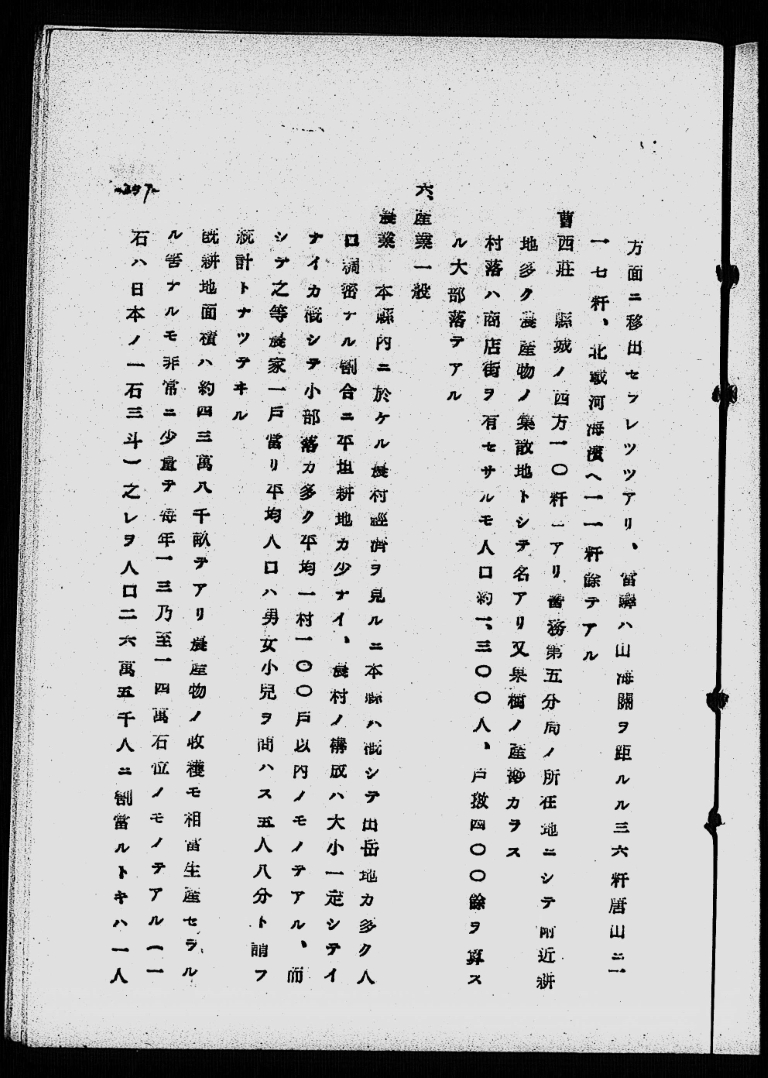 方面ニ移出セラレツツアリ、當驛ハ山海關ヲ距ルル三六粁唐山ニ一
一七粁、北戴河海濱ヘ一一粁餘テアル
曹西莊　縣城ノ西方一〇粁ニアリ警務第五分局ノ所在地ニシテ附近耕
地多ク農産物ノ集散地トシテ名アリ又果樹ノ産尠カラス
村落ハ商店街ヲ有セサルモ人口約一、三〇〇人、戸数四〇〇餘ヲ算ス
ル大部落テアル
六、産業一般
農業　本縣内ニ於ケル農村經濟ヲ見ルニ本縣ハ概シテ山岳地カ多ク人
口稠密ナル割合ニ平坦耕地カ少ナイ、農村ノ構成ハ大小一定シテイ
ナイカ概シテ小部落カ多ク平均一村一〇〇戸以内ノモノテアル、而
シテ之等農家一戸當リ平均人口ハ男女小兒ヲ問ハス五人八分ト謂フ
統計トナツテヰル
既耕地面積ハ約四三萬八千畝テアリ農産物ノ收穫モ相當生産セラル
ル筈ナルモ非常ニ少量テ毎年一三乃至一四萬石位ノモノテアル(一
石ハ日本ノ一石三斗)之レヲ人口二六萬五千人ニ割當ルトキハ一人
-237-